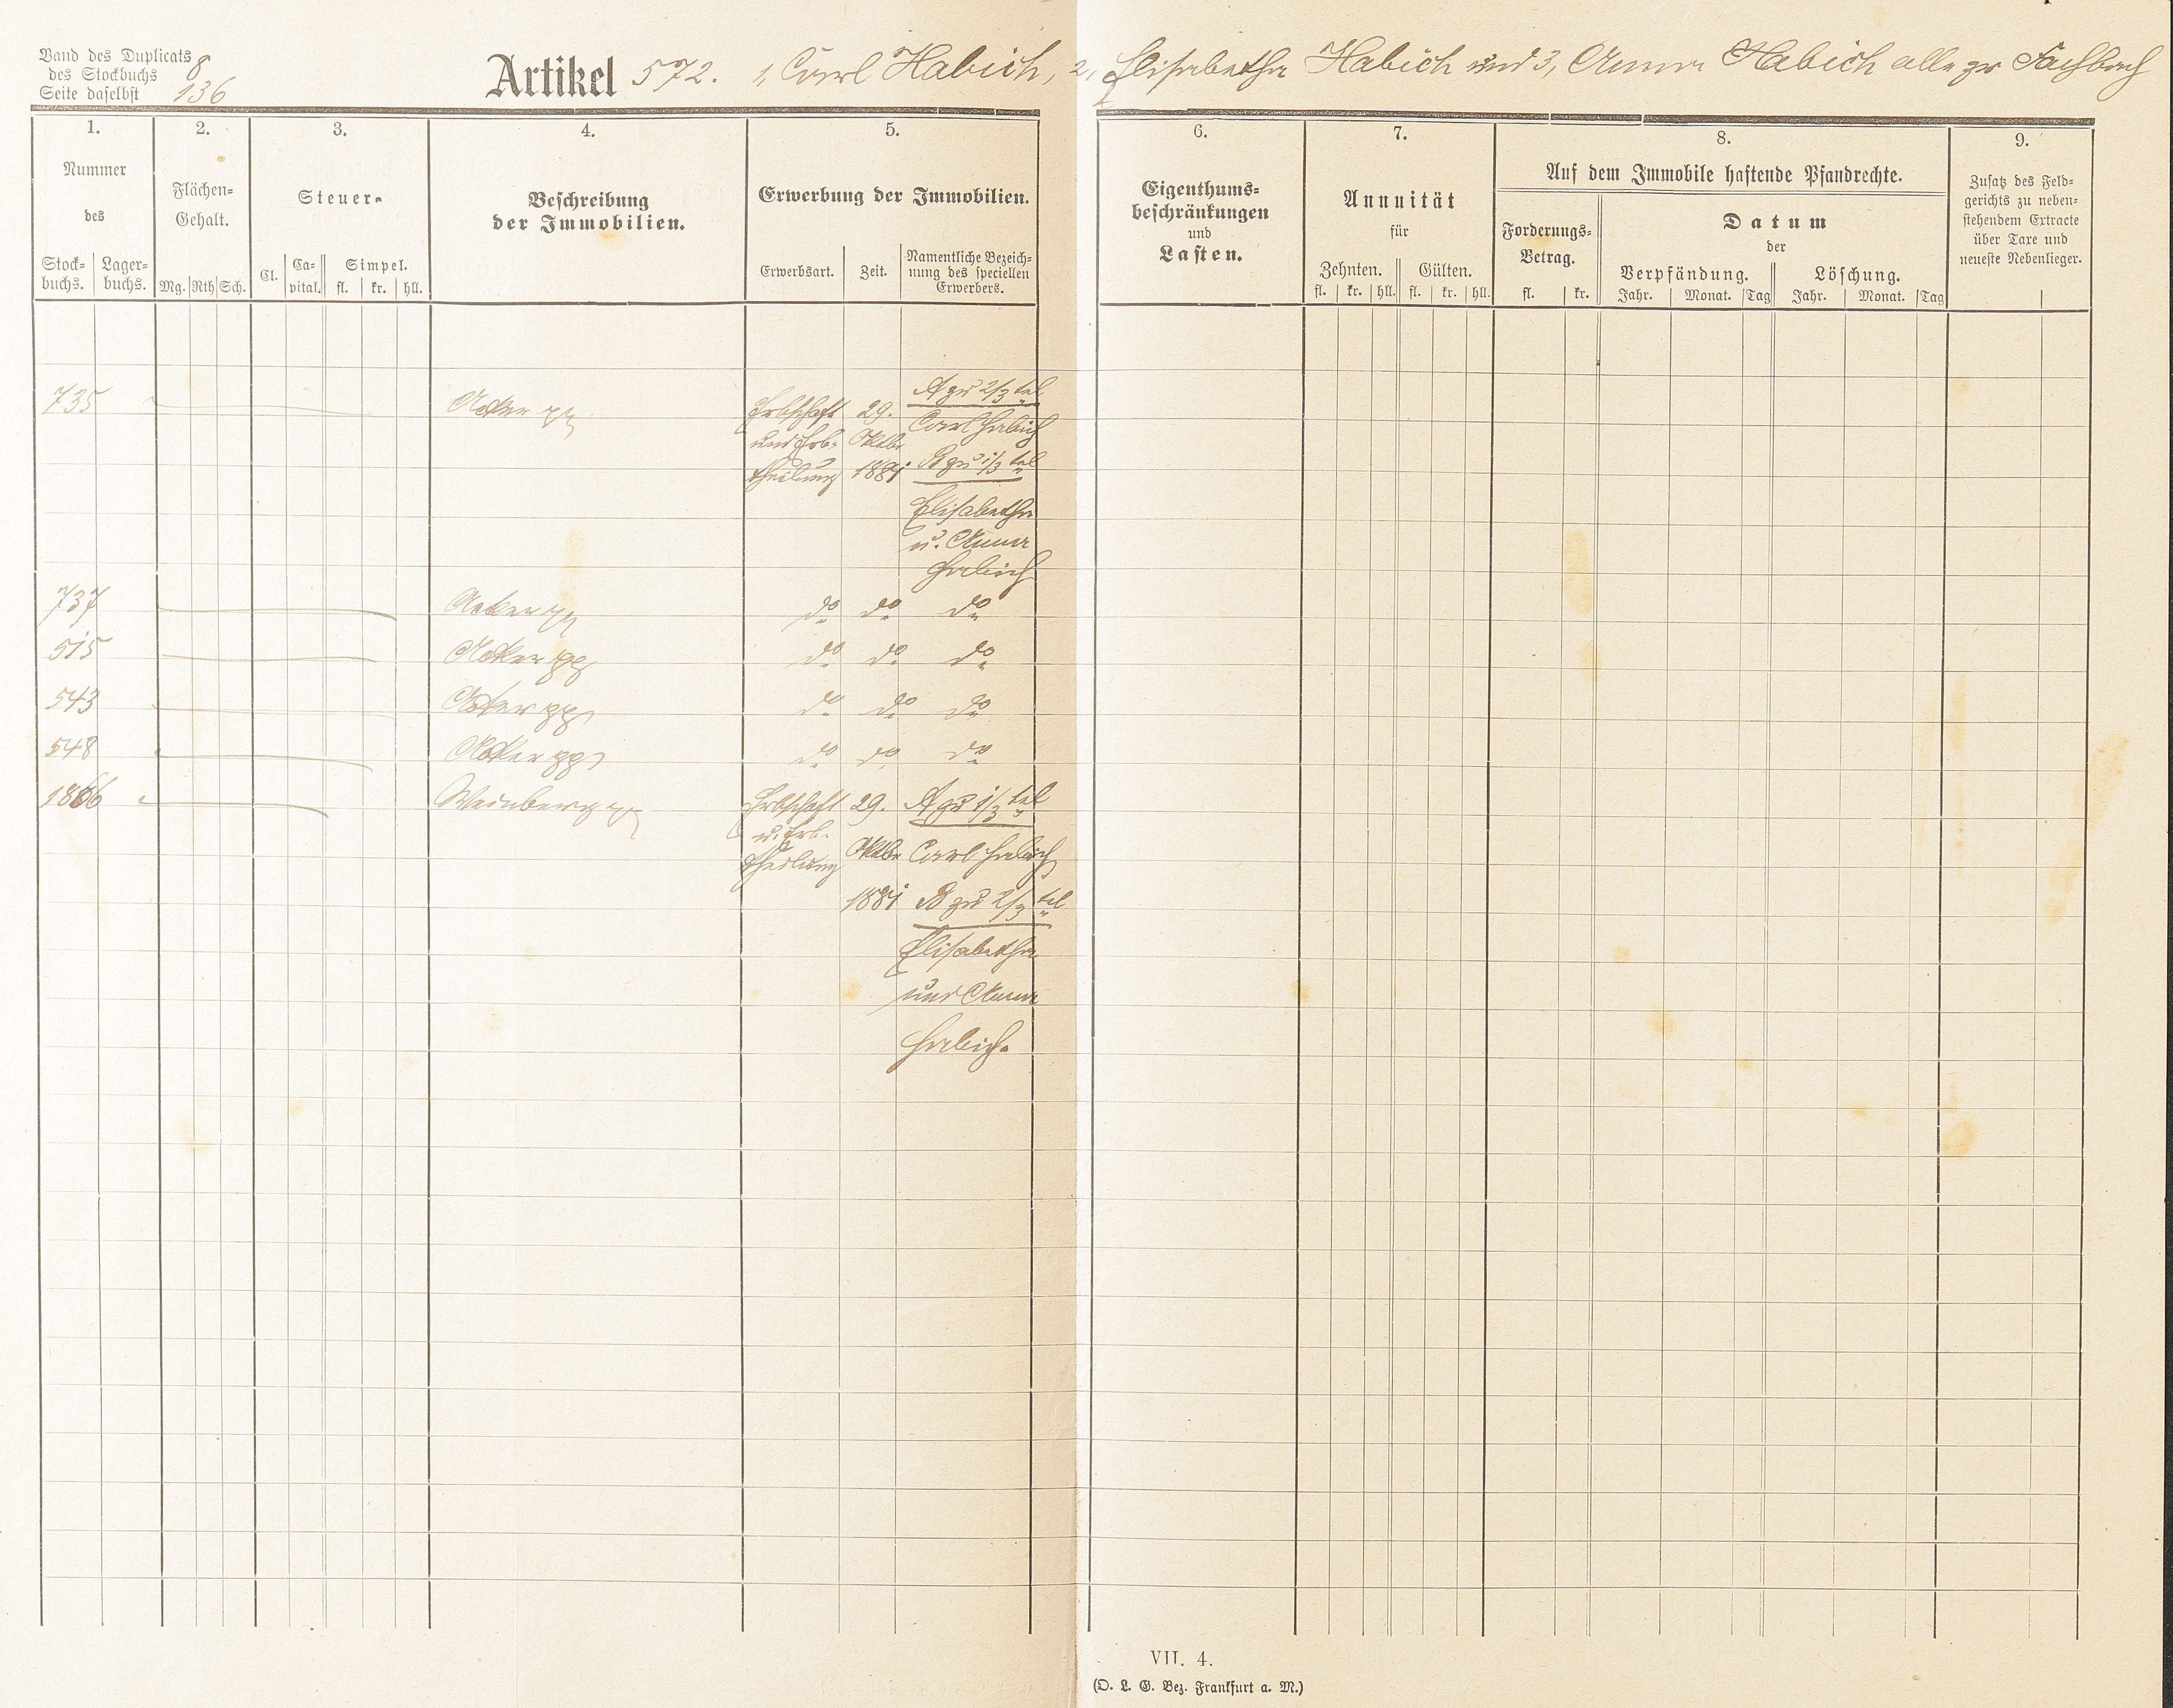 Band des Duplicats
des Stockbuchs 8
Seite daselbst 136
Artikel 572. 1, Carl Habich, 2, Elisabetha Habich und 3, Anna Habich alle zu Fachbach
1. 2. 3. 4. 5. 6. 7. 8. 9.
Nummer
des
Stock-
buchs.
Lager-
buchs.
Flächen-
Gehalt.
Mg. Rth Sch.
Steuer-
Cl.
Ca-
vital.
Simpel.
fl. kr. hll.
Beschreibung
der Immobilien.
Erwerbung der Immobilien.
Erwerbsart. Zeit.
Namentliche Bezeich-
nung des speciellen
Erwerbers.
Eigenthums-
beschränkungen
und
Lasten.
Annuität
für
Zehnten. Gülten.
fl. kr. hll. fl. kr. hll.
Auf dem Immobile haftende Pfandrechte.
Forderungs-
Betrag.
fl. kr.
Datum
der
Verpfändung. Löschung.
Jahr. Monat. Tag Jahr. Monat. Tag
Zusatz des Feld-
gerichts zu neben-
stehendem Extracte
über Taxe und
neueste Nebenlieger.
A zu 2/3 tel
735 Acker pp Erbschaft 29. Carl Habich
und Erb- Oktbr
theilung 1881 B zu 1/3 tel
Elisabetha
u. Anna
Habich
737 Acker pp do do do
515 Acker pp do do do
543 Acker pp do do do
548 Acker pp do do do
1866 Weinberg pp Erbschaft 29. A zu 1/3 tel
u. Erb-
theilung Oktbr Carl Habich
1881 B zu 2/3 tel
Elisabetha
und Anna
Habich.
VII. 4.
(O. L. G. Bez. Frankfurt a. M.)